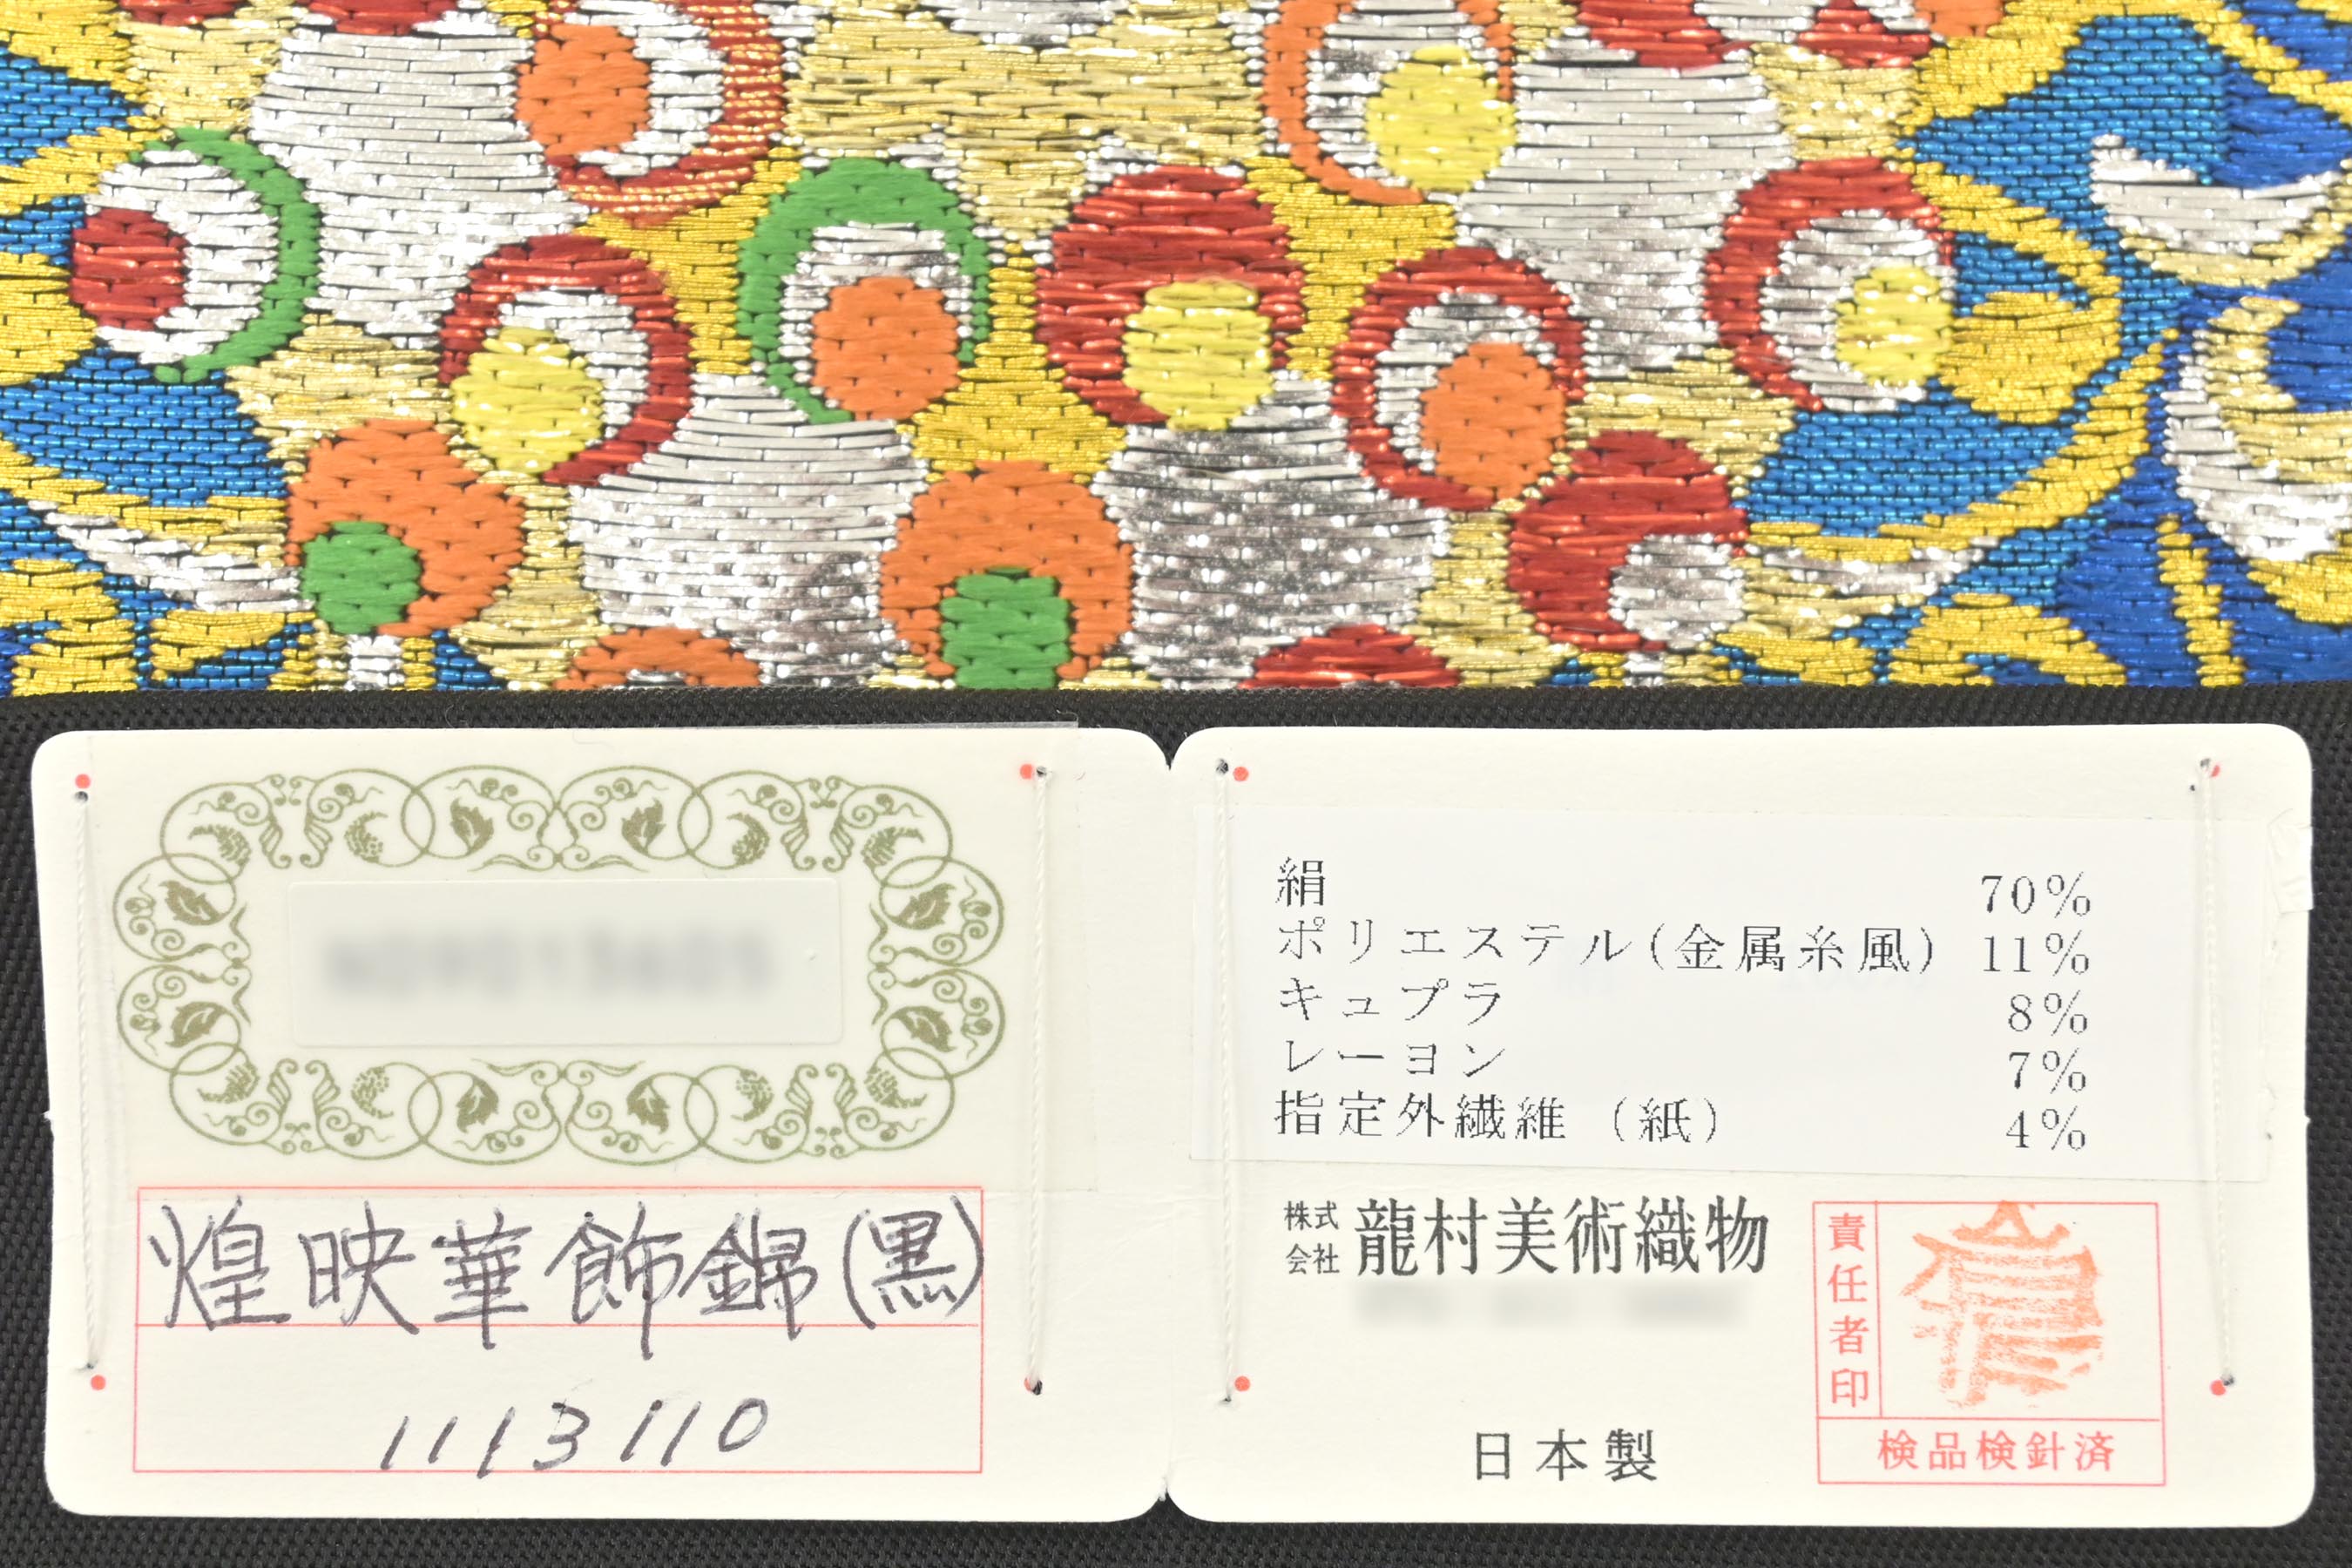 煌映華飾錦(黒)
1113110
絹 70%
ポリエステル(金属糸風) 11%
キュプラ 8%
レーヨン 7%
指定外繊維 (紙) 4%
株式会社 龍村美術織物
日本製
責任者印
検品検針済